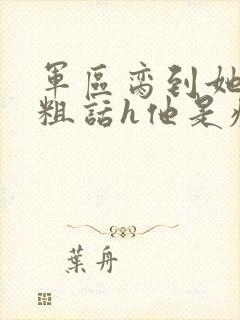 軍區裔到她
粗話h他是
葉舟